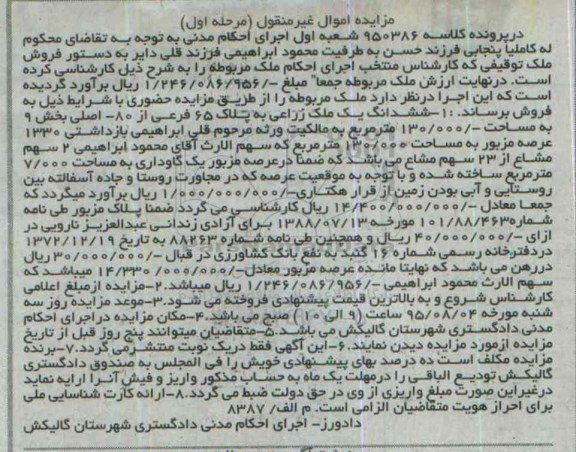 مزایده اموال غیرمنقول (مرحله اول)
درپرونده کلاسه ۹۵۰۳۸۶ شعبه اول اجرای احکام مدنی به توجه به تقاضای محکوم
له کاملیا پنجابی فرزند حسن به طرفیت محمود ابراهیمی فرزند قلی دایر به دستور فروش
ملک توقیفی که کارشناس منتخب اجرای احکام ملک مربوطه را به شرح ذیل کارشناسی کرده
است. درنهایت ارزش ملک مربوطه جمعا" مبلغ -/۱/۲۴۶/۰۸۶/۹۵۶ ریال برآورد گردیده
است که این اجرا درنظر دارد ملک مربوطه را از طریق مزایده حضوری با شرایط ذیل به
فروش برساند. :۱-ششدانگ یک ملک زراعی به پلاک ۶۵ فرعی از ۸۰- اصلی بخش ۹
به مساحت -/۱۳۰/۰۰۰ مترمربع به مالکیت ورثه مرحوم قلی ابراهیمی بازداشتی ۱۳۳۰
عرصه مزبور به مساحت ۱۳۰/۰۰۰ مترمربع که سهم الارث آقای محمود ابراهیمی ۲ سهم
مشاع از ۲۳ سهم مشاع می باشد که ضمنا درعرصه مزبور یک گاوداری به مساحت ۷/۰۰۰
مترمربع ساخته شده و با توجه به موقعیت عرصه که در مجاورت روستا و جاده آسفالته بین
روستایی و آبی بودن زمین از قرار هکتاری-/۱/۰۰۰/۰۰۰/۰۰۰ ریال برآورد میگردد که
جمعا معادل -/۱۴/۴۰۰/۰۰۰/۰۰۰ ریال کارشناسی می گردد ضمنا پلاک مزبور طی نامه
شماره۱۰۱/۸۸/۴۶۳ مورخه ۱۳۸۸/۰۷/۱۳ برای آزادی زندانی عبدالعزیز نارویی در
ازای -/۴۰/۰۰۰/۰۰۰ ریال و همچنین طی نامه شماره ۸۸۲۶۳ به تاریخ ۱۳۷۲/۱۲/۱۹
دردفترخانه رسمی شماره ۱۶ گنبد به نفع بانک کشاورزی در قبال -/۳۰/۰۰۰/۰۰۰ریال
دررهن می باشد که نهایتا مانده عرصه مزبور معادل-/۱۴/۳۳۰/۰۰۰/۰۰۰ میباشد که
سهم الارث محمود ابراهیمی -/۱/۲۴۶/۰۸۶/۹۵۶ ریال میباشد.۲-مزایده ازمبلغ اعلامی
کارشناس شروع و به بالاترین قیمت پیشنهادی فروخته می شود.۳-موعد مزایده روز سه
شنبه مورخه ۹۵/۰۸/۰۴ ساعت (۹ الی ۱۰) صبح می باشد.۴-مکان مزایده دراجرای احکام
مدنی دادگستری شهرستان گالیکش می باشد.۵-متقاضیان میتوانند پنج روز قبل از تاریخ
مزایده ازمورد مزایده دیدن نمایند.۶-این آگهی فقط دریک نوبت منتشرمی گردد.۷-برنده
مزایده مکلف است ده درصد بهای پیشنهادی خویش را فی المجلس به صندوق دادگستری
گالیکش تودیع الباقی را درمهلت یک ماه به حساب مذکور واریز و فیش آنرا ارایه نماید
درغیراین صورت مبلغ واریزی از وی در حق دولت ضبط می گردد.۸-ارائه کارت شناسایی ملی
برای احراز هویت متقاضیان الزامی است. م الف/ ۸۳۸۷
دادورز- اجرای احکام مدنی دادگستری شهرستان گالیکش